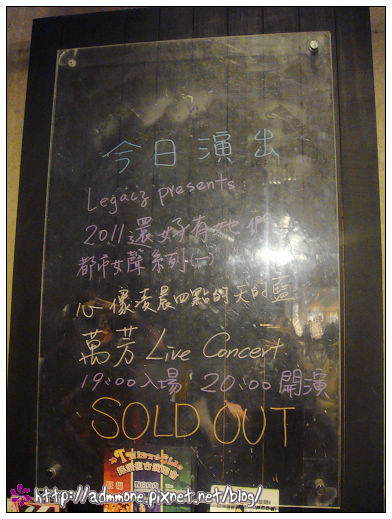 今日演出
Legacy presents
2011還好有她們
都市女聲系列(一)
心懷凌晨四點的天的藍
萬芳 Live Concert
19:00入場 20:00開演
SOLD OUT
http://admmone.pixnet.net/blog/